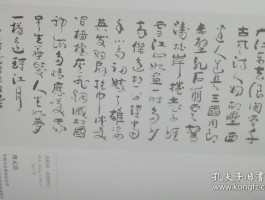 大江東去浪淘盡千
古風流人物故壘西
邊人道是三國周郎
赤壁亂石崩雲驚
濤拍岸捲起千堆
雪江山如畫一時多少
豪傑遙想公瑾當
年小喬初嫁了雄姿
英發羽扇綸巾談笑
間檣櫓灰飛煙滅故國
神遊多情應笑我
早生華髮人生如夢
一樽還酹江月
孔夫子旧书网